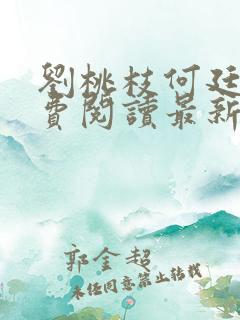 劉桃枝何廷
費閱讀最新
郭金超
未经同意禁止转载